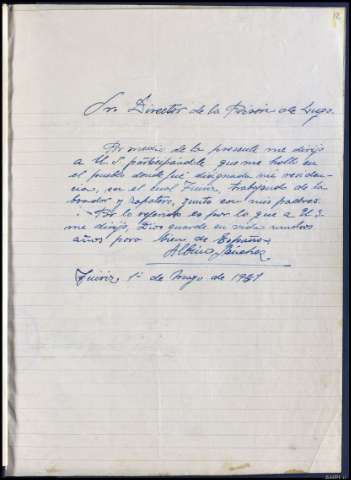 12
Sr. Director de la Prisión de Lugo.
Por medio de la presente me dirijo
a U.S. participándole, que me hallo en
el pueblo donde fué designada mi residen-
cia, en el cual Juiviz, trabajando de la
brador y zapatero, junto con mis padres.
Por lo espuesto es por lo que a U.S.
me dirijo, Dios guarde su vida muchos
años para bien de España
Albino Sánchez
Juiviz 1º de Mayo de 1951